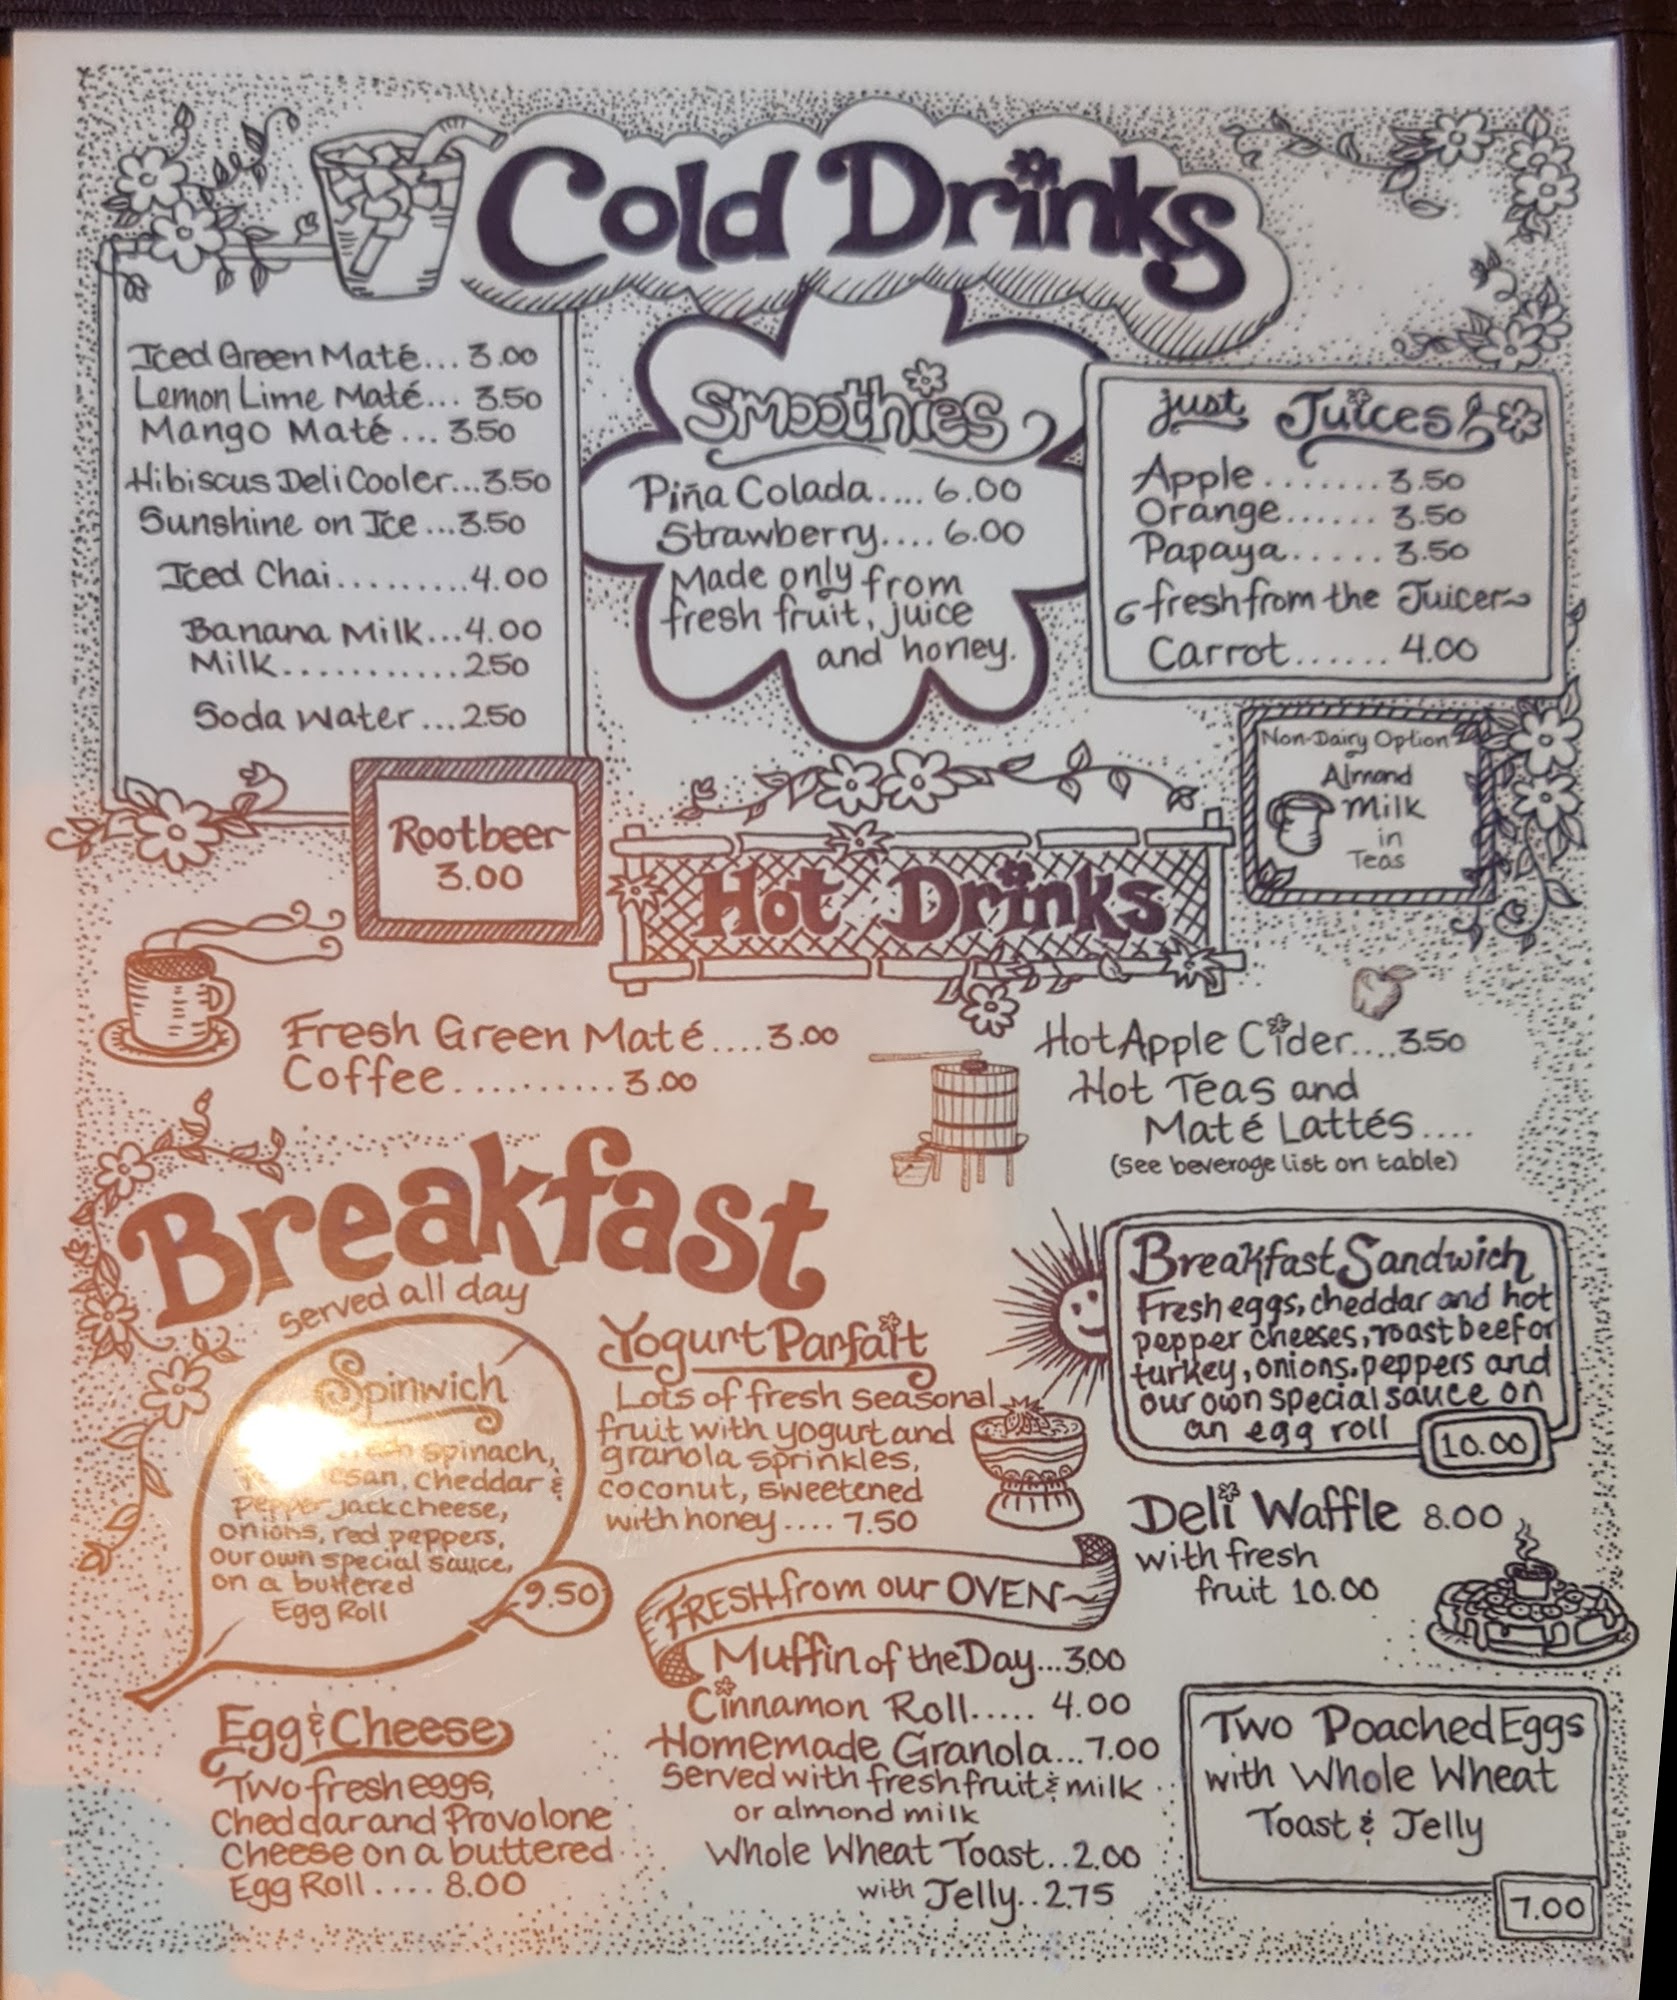 Cold Drinks
Iced Green Maté... 3.00
Lemon Lime Maté... 3.50
Mango Maté... 3.50
Hibiscus Deli Cooler...3.50
Sunshine on Ice...3.50
Iced Chai..........4.00
Banana Milk...4.00
Milk............2.50
Soda Water...2.50
Rootbeer
3.00
Smoothies
Piña Colada.... 6.00
Strawberry.... 6.00
Made only from
fresh fruit, juice
and honey.
just Juices
Apple........3.50
Orange...... 3.50
Papaya...... 3.50
fresh from the Juicer
Carrot...... 4.00
Non-Dairy Option
Almond
Milk
in
Teas
Hot Drinks
Fresh Green Maté....3.00
Coffee..........3.00
Hot Apple Cider....3.50
Hot Teas and
Maté Lattés....
(see beverage list on table)
Breakfast
served all day
Spinwich
spinach,
cheddar &
pepper jack cheese,
onions, red peppers,
our own special sauce,
on a buttered
Egg Roll
9.50
Egg & Cheese
Two fresh eggs,
Cheddar and Provolone
Cheese on a buttered
Egg Roll.... 8.00
Yogurt Parfait
Lots of fresh seasonal
fruit with yogurt and
granola sprinkles,
coconut, sweetened
with honey.... 7.50
FRESH from our OVEN
Muffin of the Day...3.00
Cinnamon Roll..... 4.00
Homemade Granola...7.00
Served with fresh fruit & milk
or almond milk
Whole Wheat Toast..2.00
with Jelly..2.75
Breakfast Sandwich
Fresh eggs, cheddar and hot
pepper cheeses, roast beef or
turkey, onions, peppers and
our own special sauce on
an egg roll
10.00
Deli Waffle 8.00
with fresh
fruit 10.00
Two Poached Eggs
with Whole Wheat
Toast & Jelly
7.00